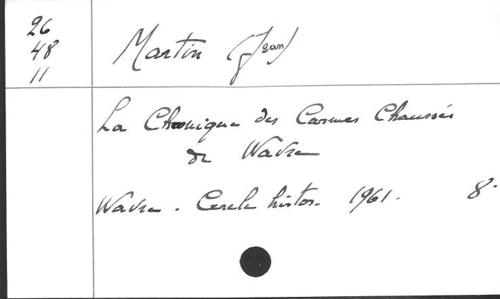 26
48
11
Martin (Jean)
La Chronique des Carmes Chaussés
de Wavre
Wavre. Cercle histor. 1961. 8°